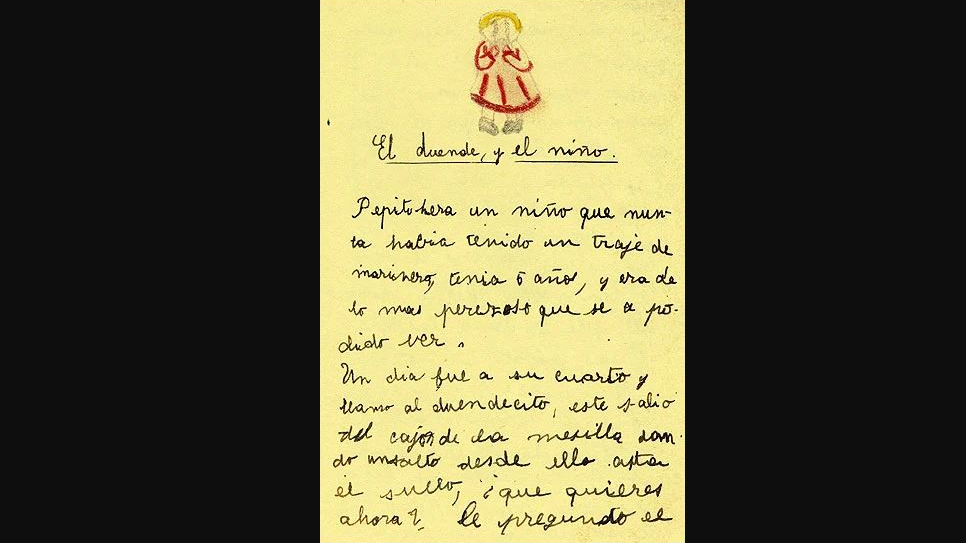 El duende, y el niño.
Pepito hera un niño que nun-
ta habia tenido un traje de
marinero, tenia 5 años, y era de
lo mas perezoso que se a po-
dido ver.
Un dia fue a su cuarto y
llamo al duendecito, este salio
del cajon de la mesilla dan-
do un salto desde ella asta
el suelo, ¿que quieres
ahora?, le pregundo el